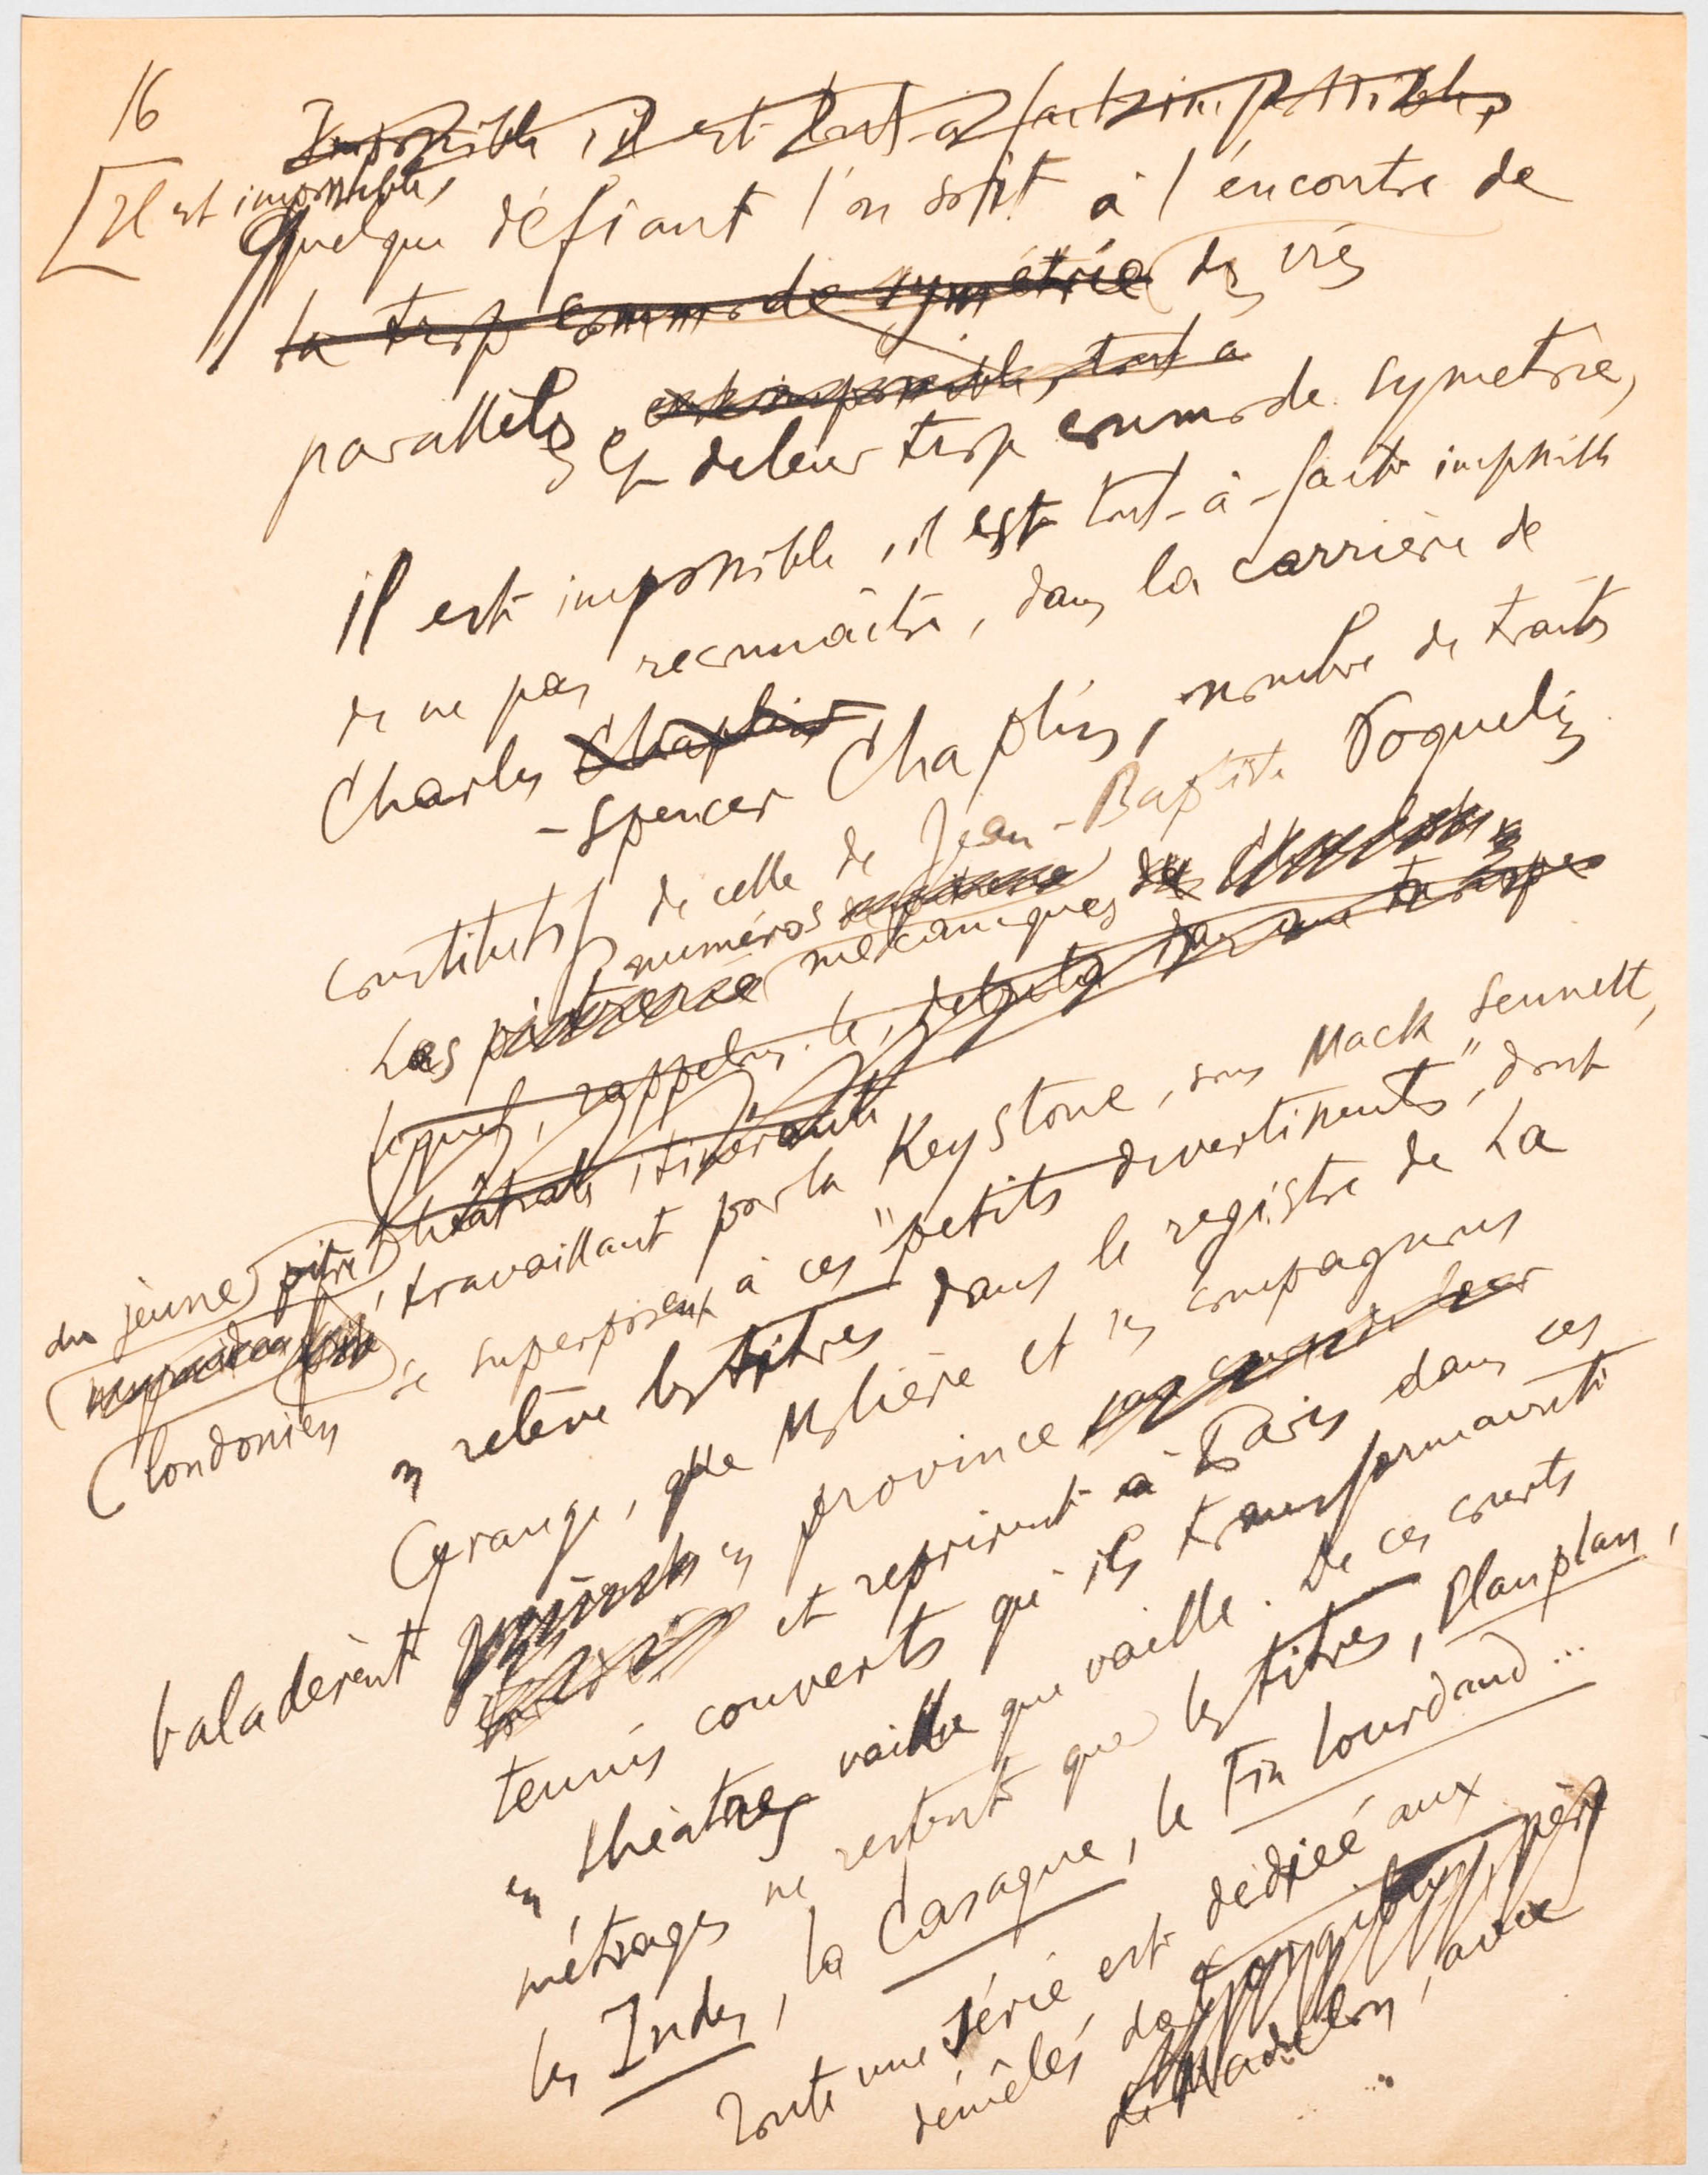 16
Impossible, il est tout-à-fait impossible,
[Il est impossible
Quelque défiant l'on soit à l'encontre de
la trop commode symétrie des vies
parallèles, est impossible, tout a
et de leur trop commode symetrie,
il est impossible, il est tout-à-fait impossible
de ne pas reconnaître, dans la carrière de
Charles Chaplin
-Spencer Chaplin, nombre de traits
constitutifs de celle de Jean-Baptiste Poquelin.
numéros
Les mécaniques du
lequel, rappelons-le, débuta dans une troupe
théâtrale itinérante
du jeune pitre
londonien
travaillant pour la Keystone, sous Mack Sennett,
se superposent à ces "petits divertiments", dont
on relève les titres dans le registre de La
Grange, que Molière et ses compagnons
baladèrent en province
et reprirent à Paris dans ces
tennis couverts qu'ils transformaient
en théâtres vaille que vaille. De ces courts
métrages ne restent que les titres, Plan plan,
les Indes, la Casaque, le Fin lourdaud...
Toute une série est dédiée aux
démêlés de père
de Madelon, avec